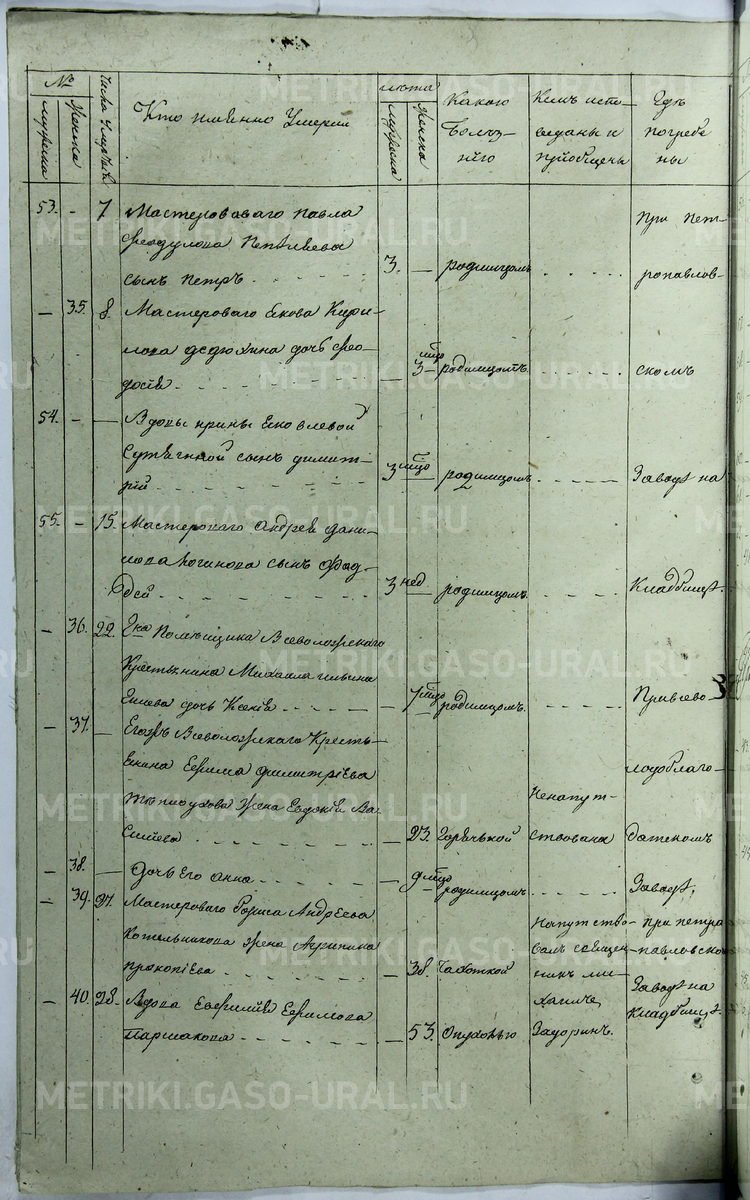 №
мужеска
женска
Числа умертвія
Кто именно Умерли
лѣта
мужеска
женска
Какою
болѣз-
нію
Кемъ испо-
веданы и
приобщены
Гдѣ
погребе
ны
53. - 7 Мастероваго павла
Феодулова
сынъ петръ 3. — родимцомъ
При пет-
ропавлов-
— 35. 8. Мастероваго Якова Кири-
лова дедюхина дочь Фео-
досія — 3 мцо родимцомъ скомъ
54. - — Вдовы ирины Яковлевой
сынъ димит-
рій 3 мцо родимцомъ Заводѣ на
55. - 15. Мастероваго Андрея дани-
лова Логинова сынъ Фад-
дей 3 нед родимцомъ Кладбищѣ.
- 36. 22. Его Помѣщика Всеволожскаго
Крестьянина Михаила ильина
дочь Ксенія — 7 мцо родимцомъ. Привсево-
- 37. — Егожъ Всеволожскаго Кресть-
янина Ефима димитріева
Тѣплоухова жена Евдокія Ва-
силіева — 23. Горячькой
Ненапут-
ствована
лодоблаго-
датскомъ
- 38. — Дочь Его Анна — 9 мцо родимцомъ Заводѣ.
- 39. 27. Мастероваго Бориса Андрѣева
Котельникова жена Агрипина
прокопіева — 38. Чахоткой
Напутство-
валъ священ-
никъ ми-
хаилъ
Задоринъ.
При петро
павловско
Заводѣ на
Кладбищѣ.
- 40. 28. Вдова Евфимія Ефимова
Паршакова — 53. Опухолью
METRIKI.GASO-URAL.RU